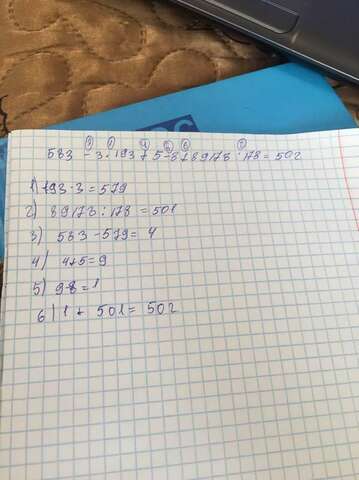 ③ ① ④ ⑤ ⑥ ②
583 - 3 · 193 + 5 - 8 + 89178 : 178 = 502
1) 193 · 3 = 579
2) 89178 : 178 = 501
3) 583 - 579 = 4
4) 4+5 = 9
5) 9-8 = 1
6) 1 + 501 = 502